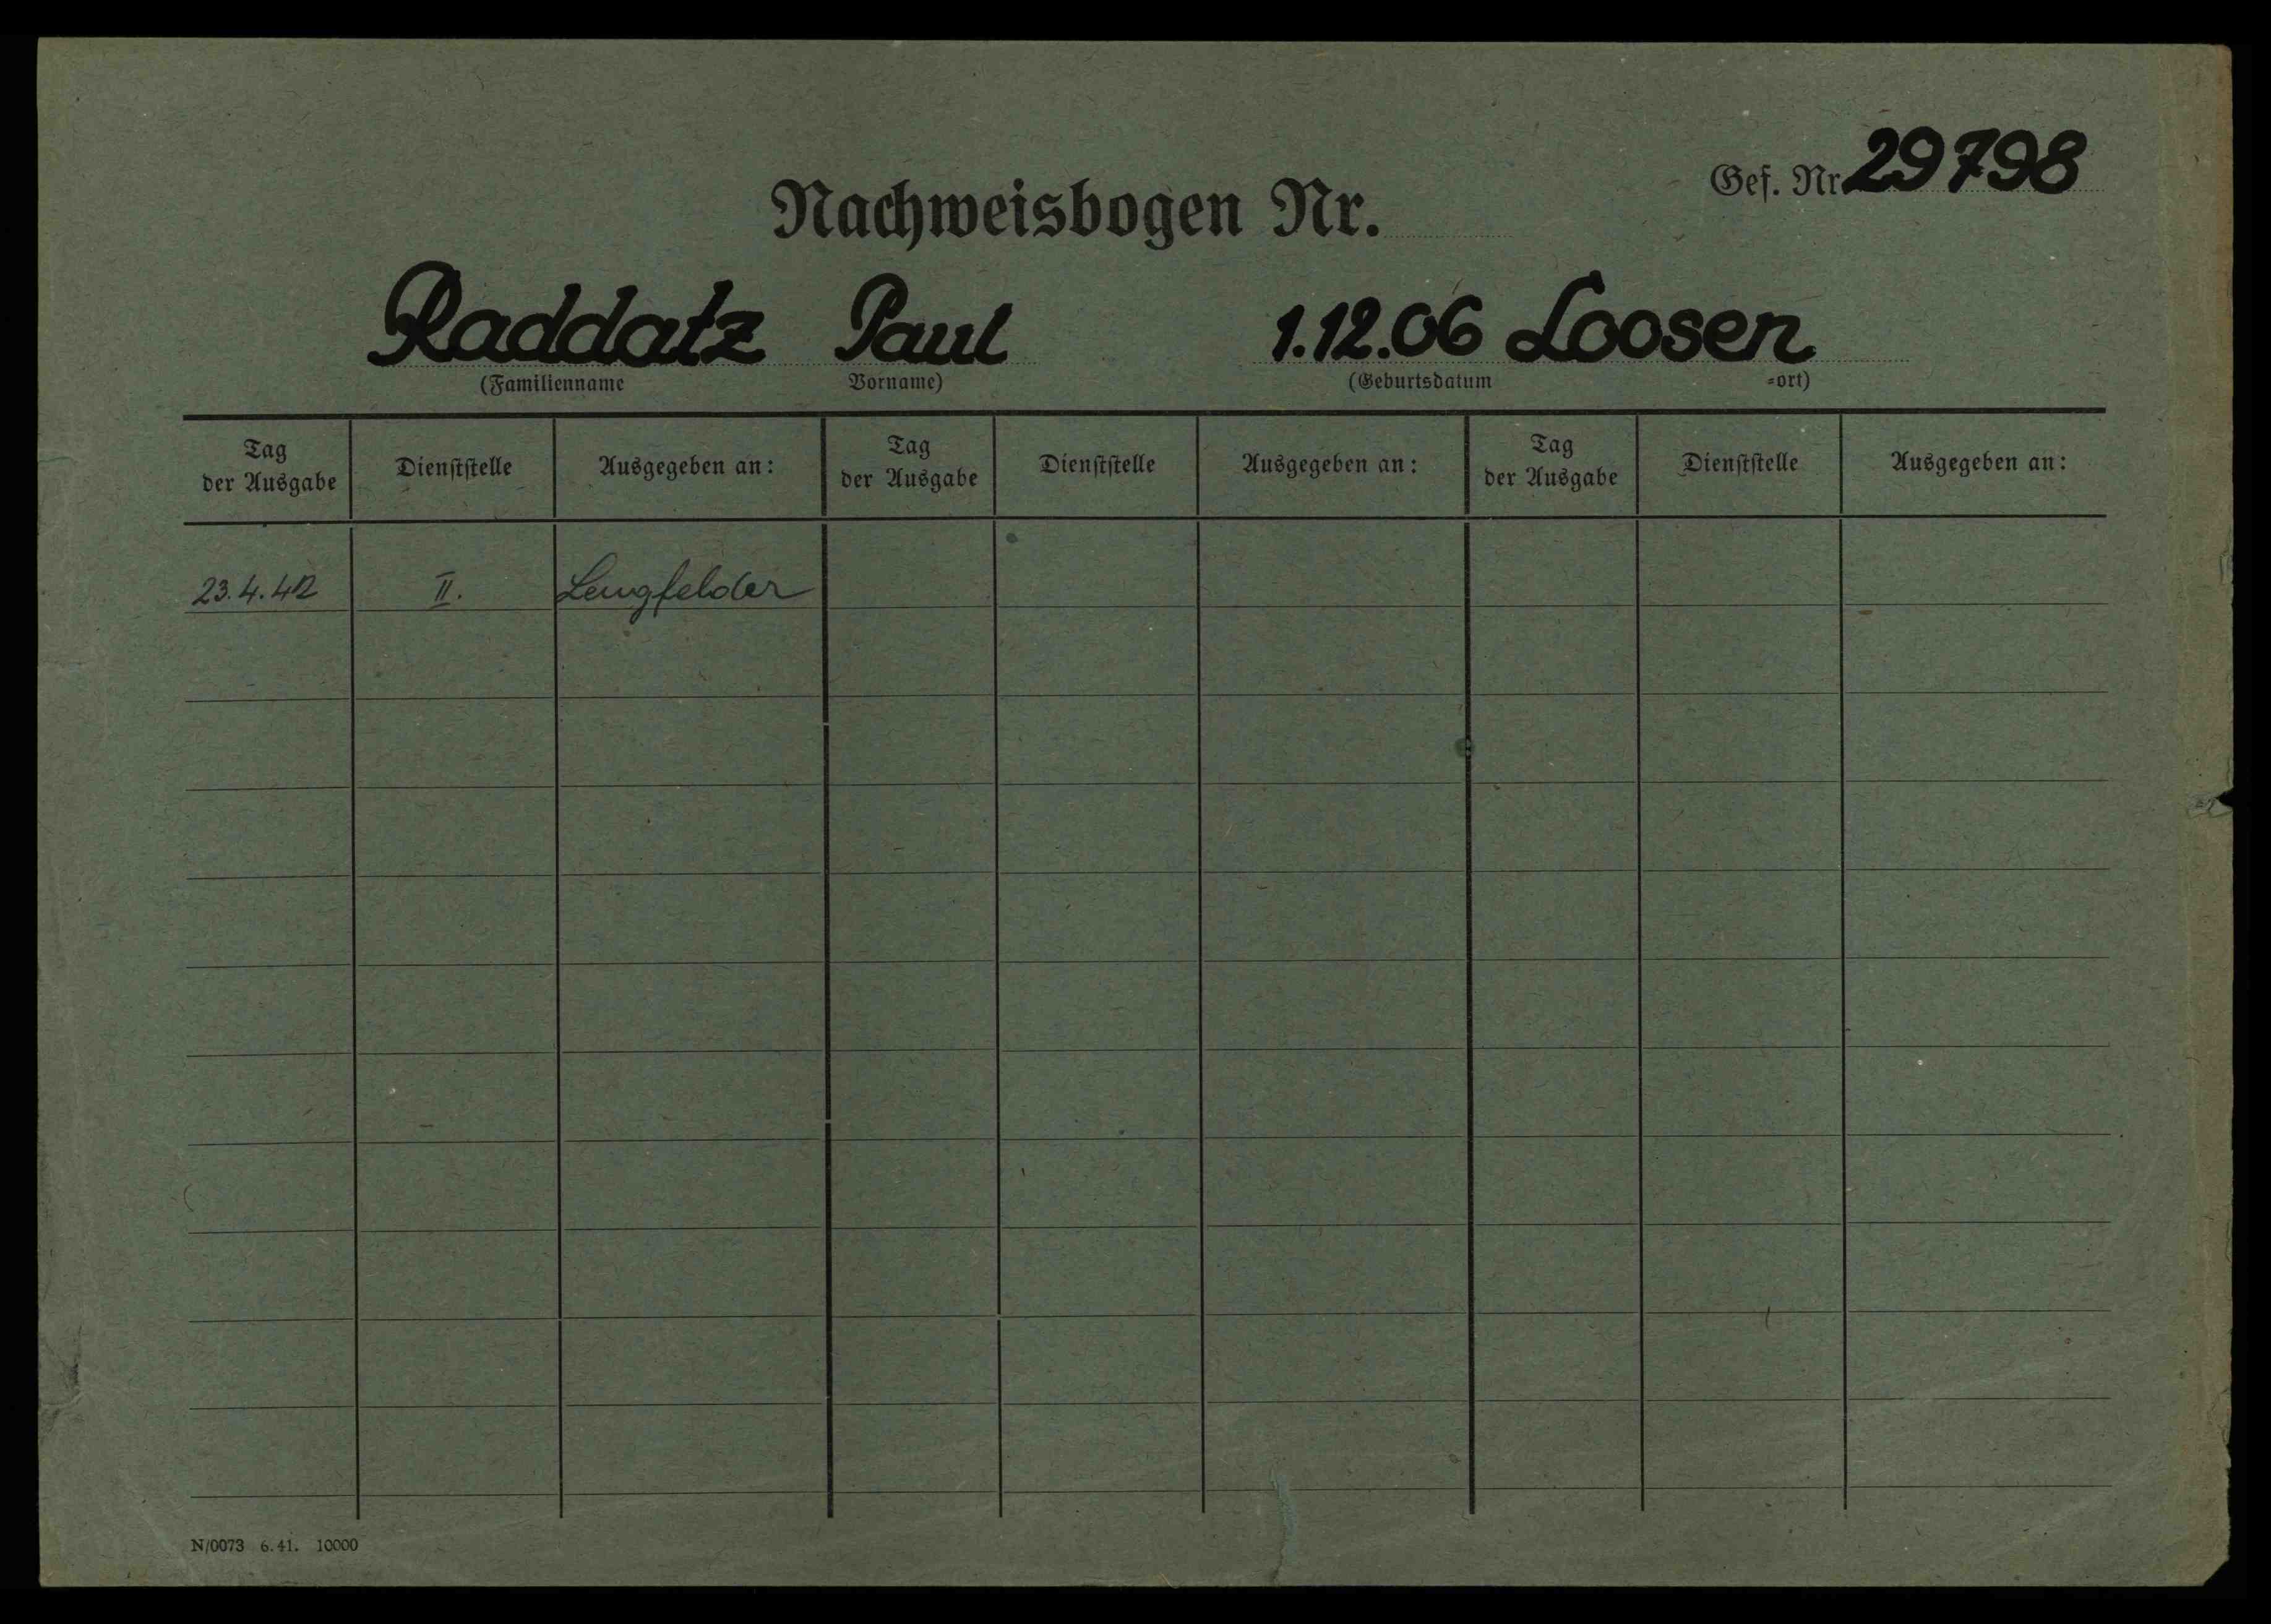 Gef. Nr. 29798
Nachweisbogen Nr.
Raddatz Paul 1.12.06 Loosen
(Familienname Vorname) (Geburtsdatum =ort)
Tag der Ausgabe Dienststelle Ausgegeben an: Tag der Ausgabe Dienststelle Ausgegeben an: Tag der Ausgabe Dienststelle Ausgegeben an:
23.4.42 II. Lengfelder
N/0073 6.41. 10000